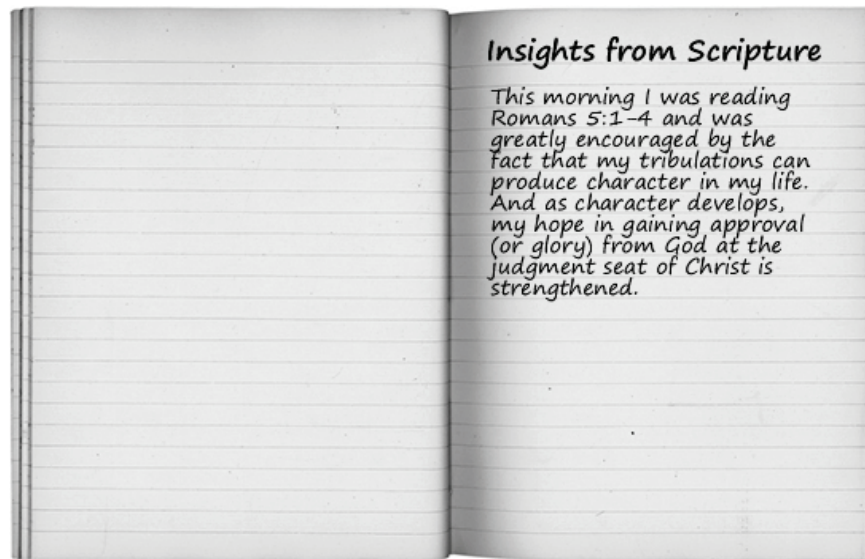 Insights from Scripture
This morning I was reading
Romans 5:1-4 and was
greatly encouraged by the
fact that my tribulations can
produce character in my life.
And as character develops,
my hope in gaining approval
(or glory) from God at the
judgment seat of Christ is
strengthened.